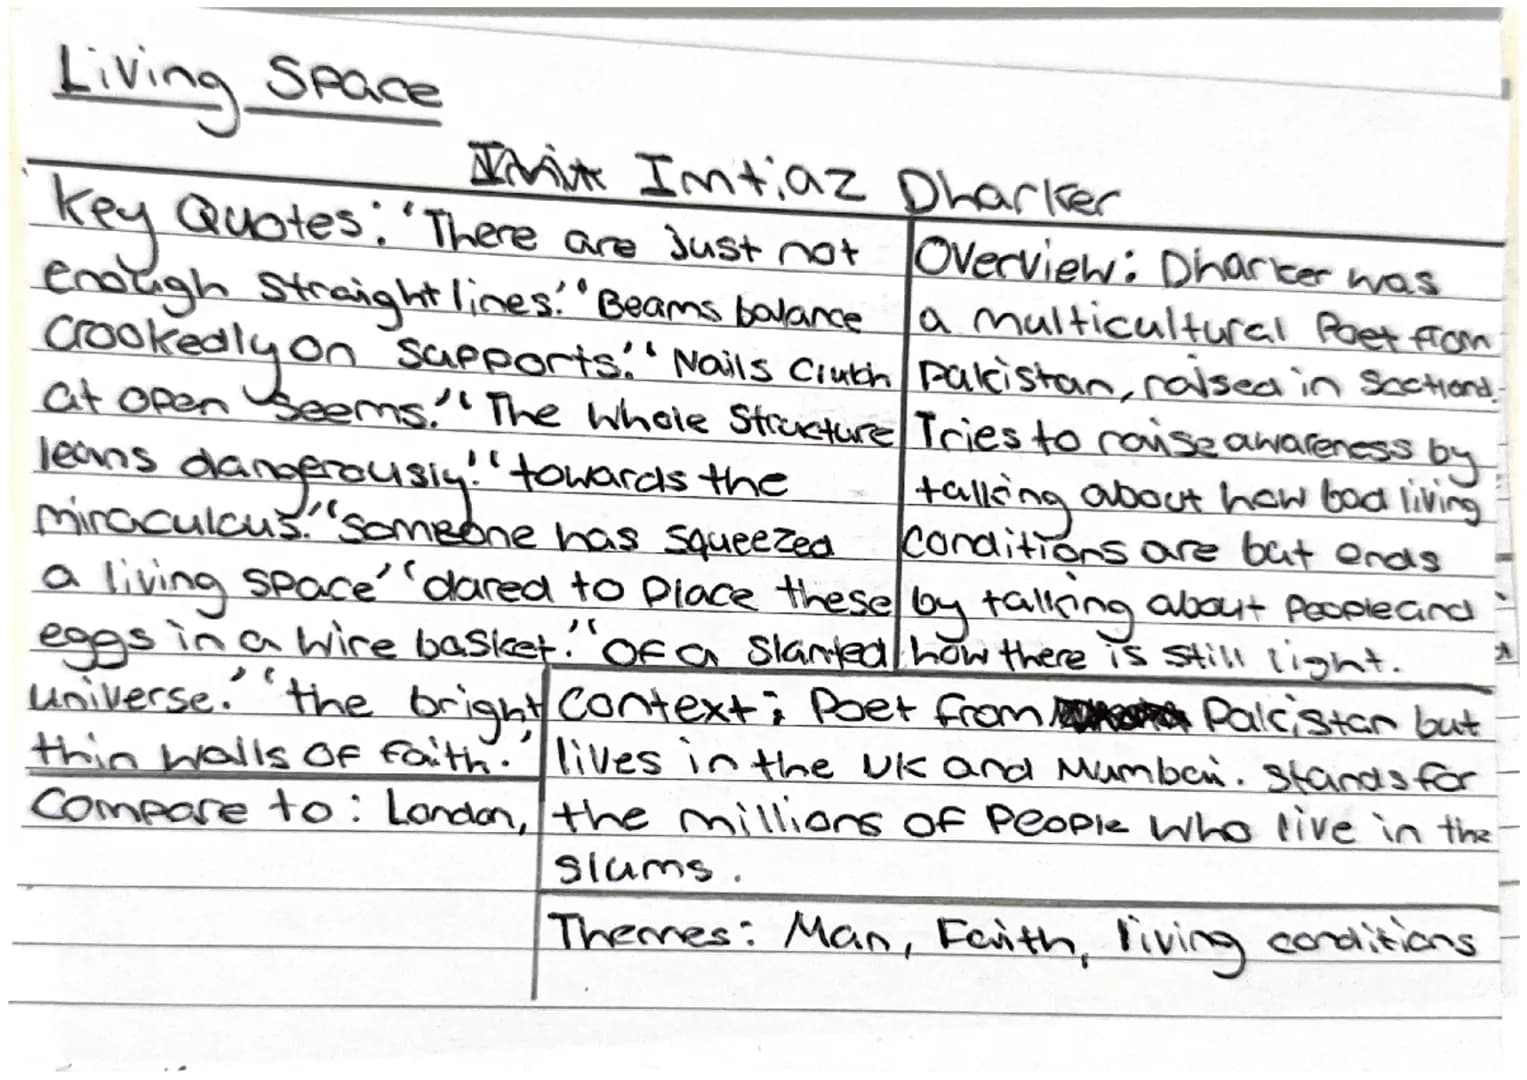 Living Space
Imtiaz Dharker
Key Quotes: 'There are just not
enough straight lines.' 'Beams balance
crookedly on supports.' 'Nails clutch
at open seems.' 'The whole structure
leans dangerously.' 'towards the
miraculous.' 'someone has squeezed
a living space' 'dared to place these
eggs in a wire basket.' 'of a slanted
universe.' 'the bright,
thin walls of faith.'
Compare to: London,
Overview: Dharker was
a multicultural Poet from
Pakistan, raised in Scotland.
Tries to raise awareness by
talking about how bad living
conditions are but ends
by talking about people and
how there is still light.
Context: Poet from Pakistan but
lives in the UK and Mumbai. Stands for
the millions of people who live in the
slums.
Themes: Man, Faith, living conditions